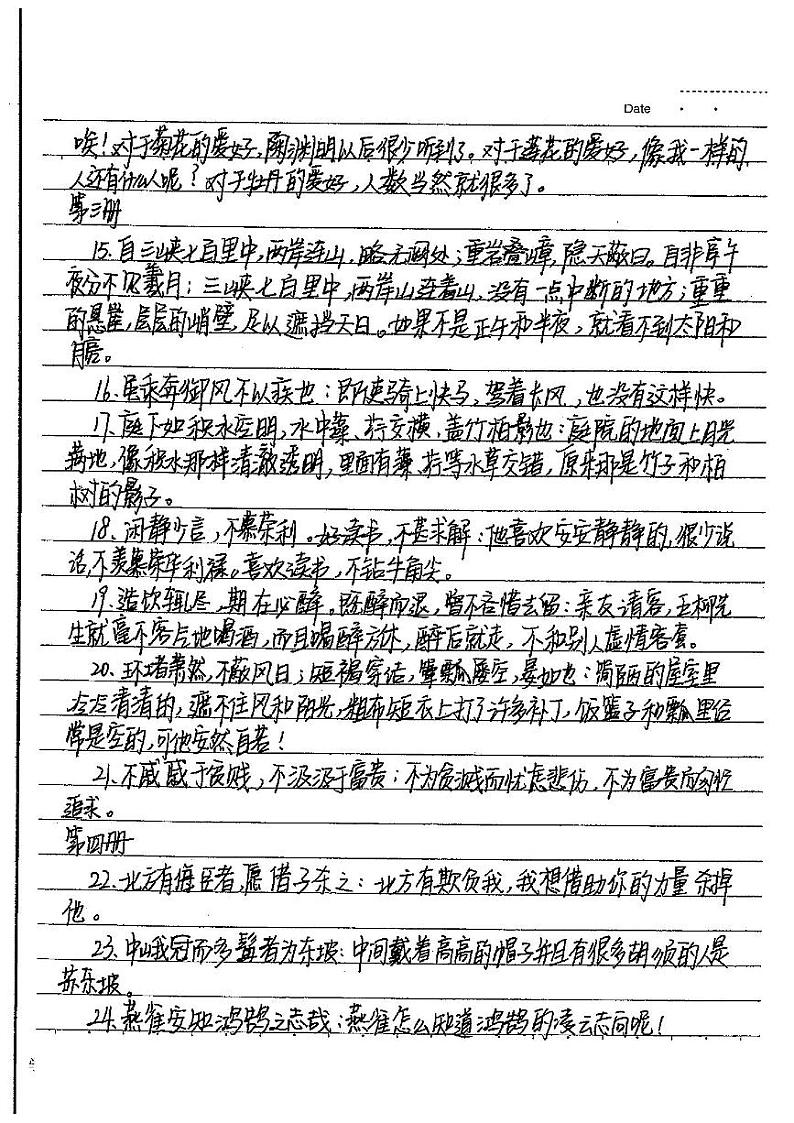 Date
唉！对于菊花的爱好，陶渊明以后很少听到了。对于莲花的爱好，像我一样的
人还有什么人呢？对于牡丹的爱好，人数当然就很多了。
第三册
15.自三峡七百里中，两岸连山，略无阙处；重岩叠嶂，隐天蔽日。自非亭午
夜分不见曦月：三峡七百里中，两岸山连着山，没有一点中断的地方；重重
的悬崖，层层的峭壁，足以遮挡天日。如果不是正午和半夜，就看不到太阳和
月亮。
16.虽乘奔御风不以疾也：即使骑上快马，驾着长风，也没有这样快。
17.庭下如积水空明，水中藻、荇交横，盖竹柏影也：庭院的地面上月光
满地，像积水那样清澈透明，里面有藻、荇等水草交错，原来那是竹子和柏
树的影子。
18.闲静少言，不慕荣利。好读书，不甚求解：他喜欢安安静静的，很少说
话，不羡慕荣华利禄。喜欢读书，不钻牛角尖。
19.造饮辄尽，期在必醉。既醉而退，曾不吝情去留：亲友请客，五柳先
生就毫不客气地喝酒，而且喝醉方休，醉后就走，不和别人虚情客套。
20.环堵萧然，不蔽风日；短褐穿结，箪瓢屡空，晏如也：简陋的屋室里
冷冷清清的，遮不住风和阳光，粗布短衣上打了许多补丁，饭篮子和瓢里经
常是空的，可他安然自若！
21.不戚戚于贫贱，不汲汲于富贵：不为贫贱而忧虑悲伤，不为富贵而匆忙
追求。
第四册
22.北方有侮臣者，愿借子杀之：北方有欺负我，我想借助你的力量杀掉
他。
23.中峨冠而多髯者为东坡：中间戴着高高的帽子并且有很多胡须的人是
苏东坡。
24.燕雀安知鸿鹄之志哉：燕雀怎么知道鸿鹄的凌云志向呢！